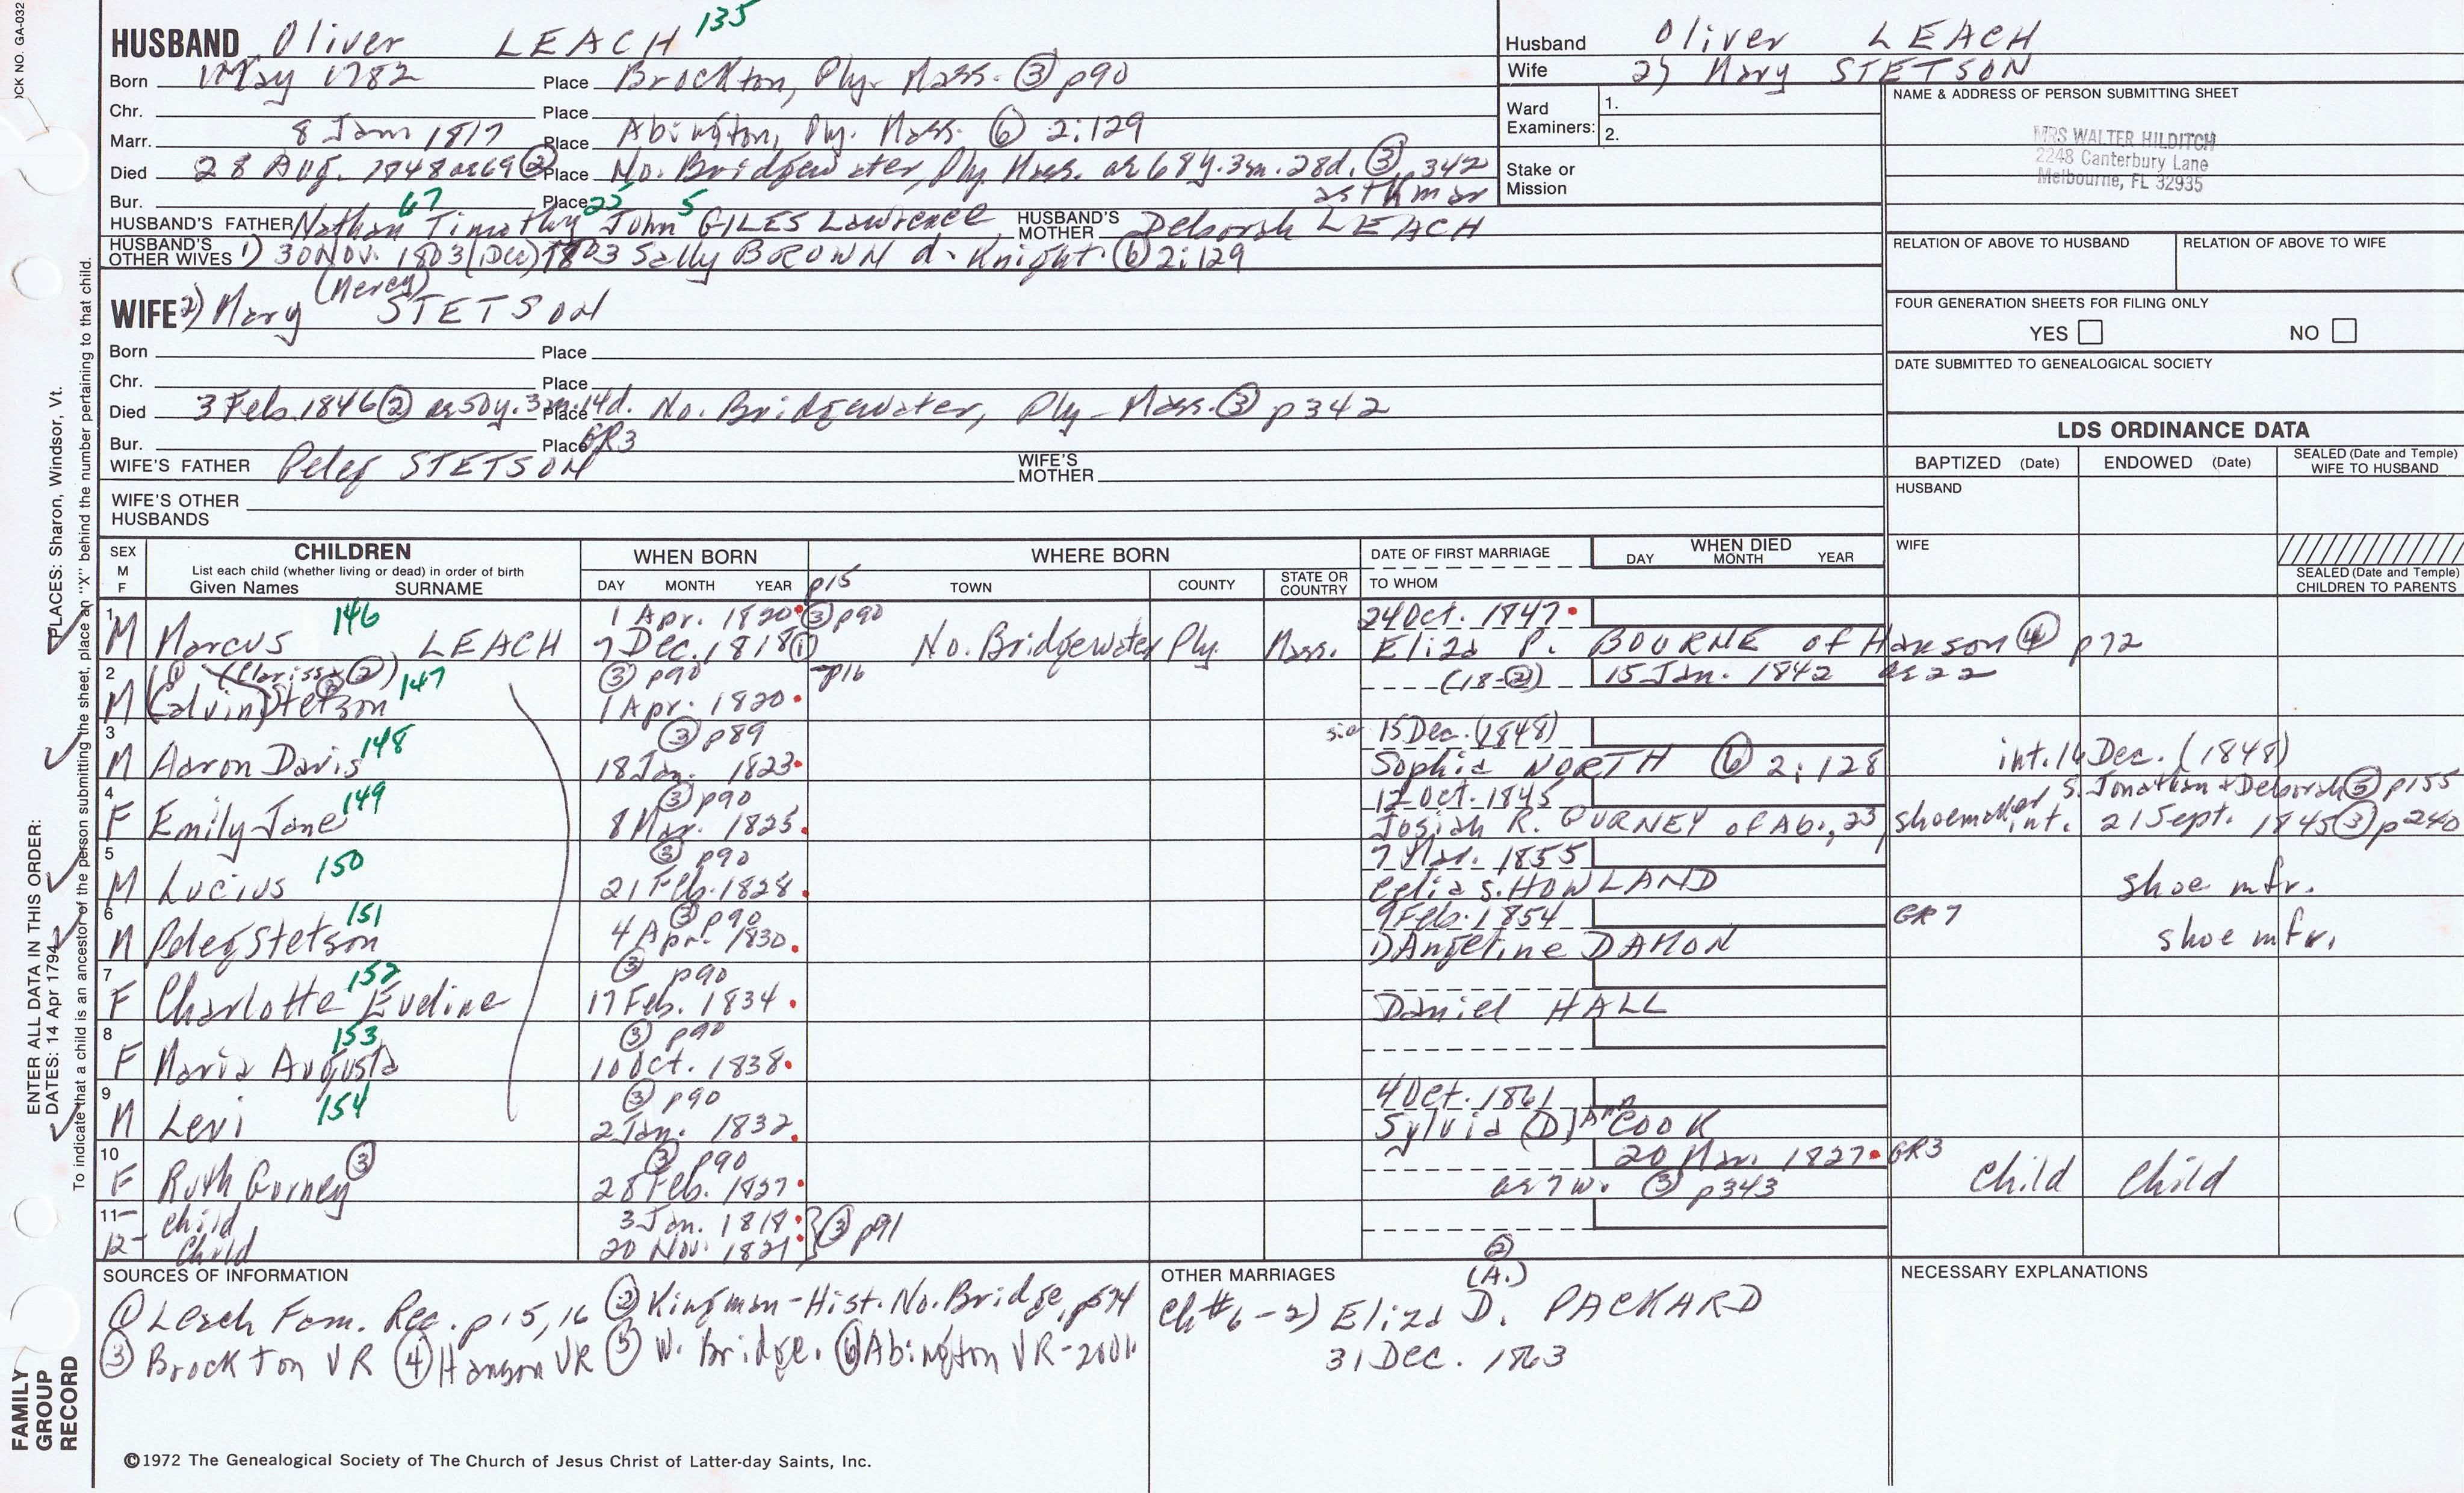 OCK NO. GA-032
HUSBAND Oliver LEACH 135
Born 1 May 1782 Place Brockton, Ply. Mass. ③ p90
Chr. Place
Marr. 8 Jan 1817 Place Abington, Ply. Mass. ⑥ 2:129
Died 28 Aug. 1848 ae 69 ② Place No. Bridgewater, Ply. Mass. ae 68y. 3m. 28d. ③ p342
Bur. Place asthma
67 25 5
HUSBAND'S FATHER Nathan Timothy John GILES Lawrence HUSBAND'S MOTHER Deborah LEACH
HUSBAND'S OTHER WIVES 1) 30 Nov. 1803 (Dec) 1803 Sally BROWN d. Knight ⑥ 2:129
(Mercy)
WIFE 2) Mary STETSON
Born Place
Chr. Place
Died 3 Feb. 1846 ② ae 50y. 3m. 14d. Place No. Bridgewater, Ply - Mass. ③ p342
Bur. Place GR3
WIFE'S FATHER Peleg STETSON WIFE'S MOTHER
WIFE'S OTHER HUSBANDS
Husband Oliver LEACH
Wife 2) Mary STETSON
Ward Examiners: 1. 2.
Stake or Mission
NAME & ADDRESS OF PERSON SUBMITTING SHEET
MRS WALTER HILDITCH
2248 Canterbury Lane
Melbourne, FL 32935
RELATION OF ABOVE TO HUSBAND RELATION OF ABOVE TO WIFE
FOUR GENERATION SHEETS FOR FILING ONLY
YES NO
DATE SUBMITTED TO GENEALOGICAL SOCIETY
LDS ORDINANCE DATA
BAPTIZED (Date) ENDOWED (Date) SEALED (Date and Temple) WIFE TO HUSBAND
HUSBAND
WIFE
SEALED (Date and Temple) CHILDREN TO PARENTS
SEX M F
CHILDREN
List each child (whether living or dead) in order of birth
Given Names SURNAME
WHEN BORN
DAY MONTH YEAR p15
WHERE BORN
TOWN COUNTY STATE OR COUNTRY
DATE OF FIRST MARRIAGE
TO WHOM
WHEN DIED
DAY MONTH YEAR
1 146 1 Apr. 1820 ③ p90 24 Oct. 1847
M Marcus LEACH 7 Dec. 1818 ① No. Bridgewater Ply. Mass. Eliza P. BOURNE of Hanson ④ p72
2 ① (Clarissa ②) 147 ③ p90 p16 (18-②) 15 Jan. 1842 ae 22
M (Calvin) Stetson ② 1 Apr. 1820
3 148 ③ p89 sic 15 Dec. (1848)
M Aaron Davis 18 Jan. 1823 Sophia NORTH ⑥ 2:128 int. 16 Dec. (1848)
4 149 ③ p90 12 Oct. 1845 S. Jonathan & Deborah ⑤ p155
F Emily Jane 8 Mar. 1825 Josiah R. GURNEY of Ab., 23, shoemaker int. 21 Sept. 1845 ③ p240
5 150 ③ p90 7 Mar. 1855
M Lucius 21 Feb. 1828 Celia S. HOWLAND shoe mfr.
6 151 ③ p90 9 Feb. 1854 GR7
M Peleg Stetson 4 Apr. 1830 1) Angeline DAMON shoe mfr.
7 152 ③ p90
F Charlotte Eveline 17 Feb. 1834 Daniel HALL
8 153 ③ p90
F Maria Augusta 10 Oct. 1838
9 154 ③ p90 4 Oct. 1861
M Levi 2 Jan. 1832 Sylvia (D) Ann COOK
10 ③ p90 20 Mar. 1827 GR3
F Ruth Gurney ③ 28 Feb. 1827 ae 7 w. ③ p343 Child Child
11- child 3 Jan. 1818
12- Child 20 Nov. 1821 } ③ p91
SOURCES OF INFORMATION
① Leach Fam. Rec. p15, 16 ② Kingman-Hist. No. Bridge, p574
③ Brockton VR ④ Hanson VR ⑤ W. Bridge. ⑥ Abington VR-2001
OTHER MARRIAGES
② (A.)
Ch #6-2) Eliza D. PACKARD
31 Dec. 1863
NECESSARY EXPLANATIONS
©1972 The Genealogical Society of The Church of Jesus Christ of Latter-day Saints, Inc.
FAMILY GROUP RECORD
ENTER ALL DATA IN THIS ORDER:
DATES: 14 Apr 1794
PLACES: Sharon, Windsor, Vt.
To indicate that a child is an ancestor of the person submitting the sheet, place an "X" behind the number pertaining to that child.